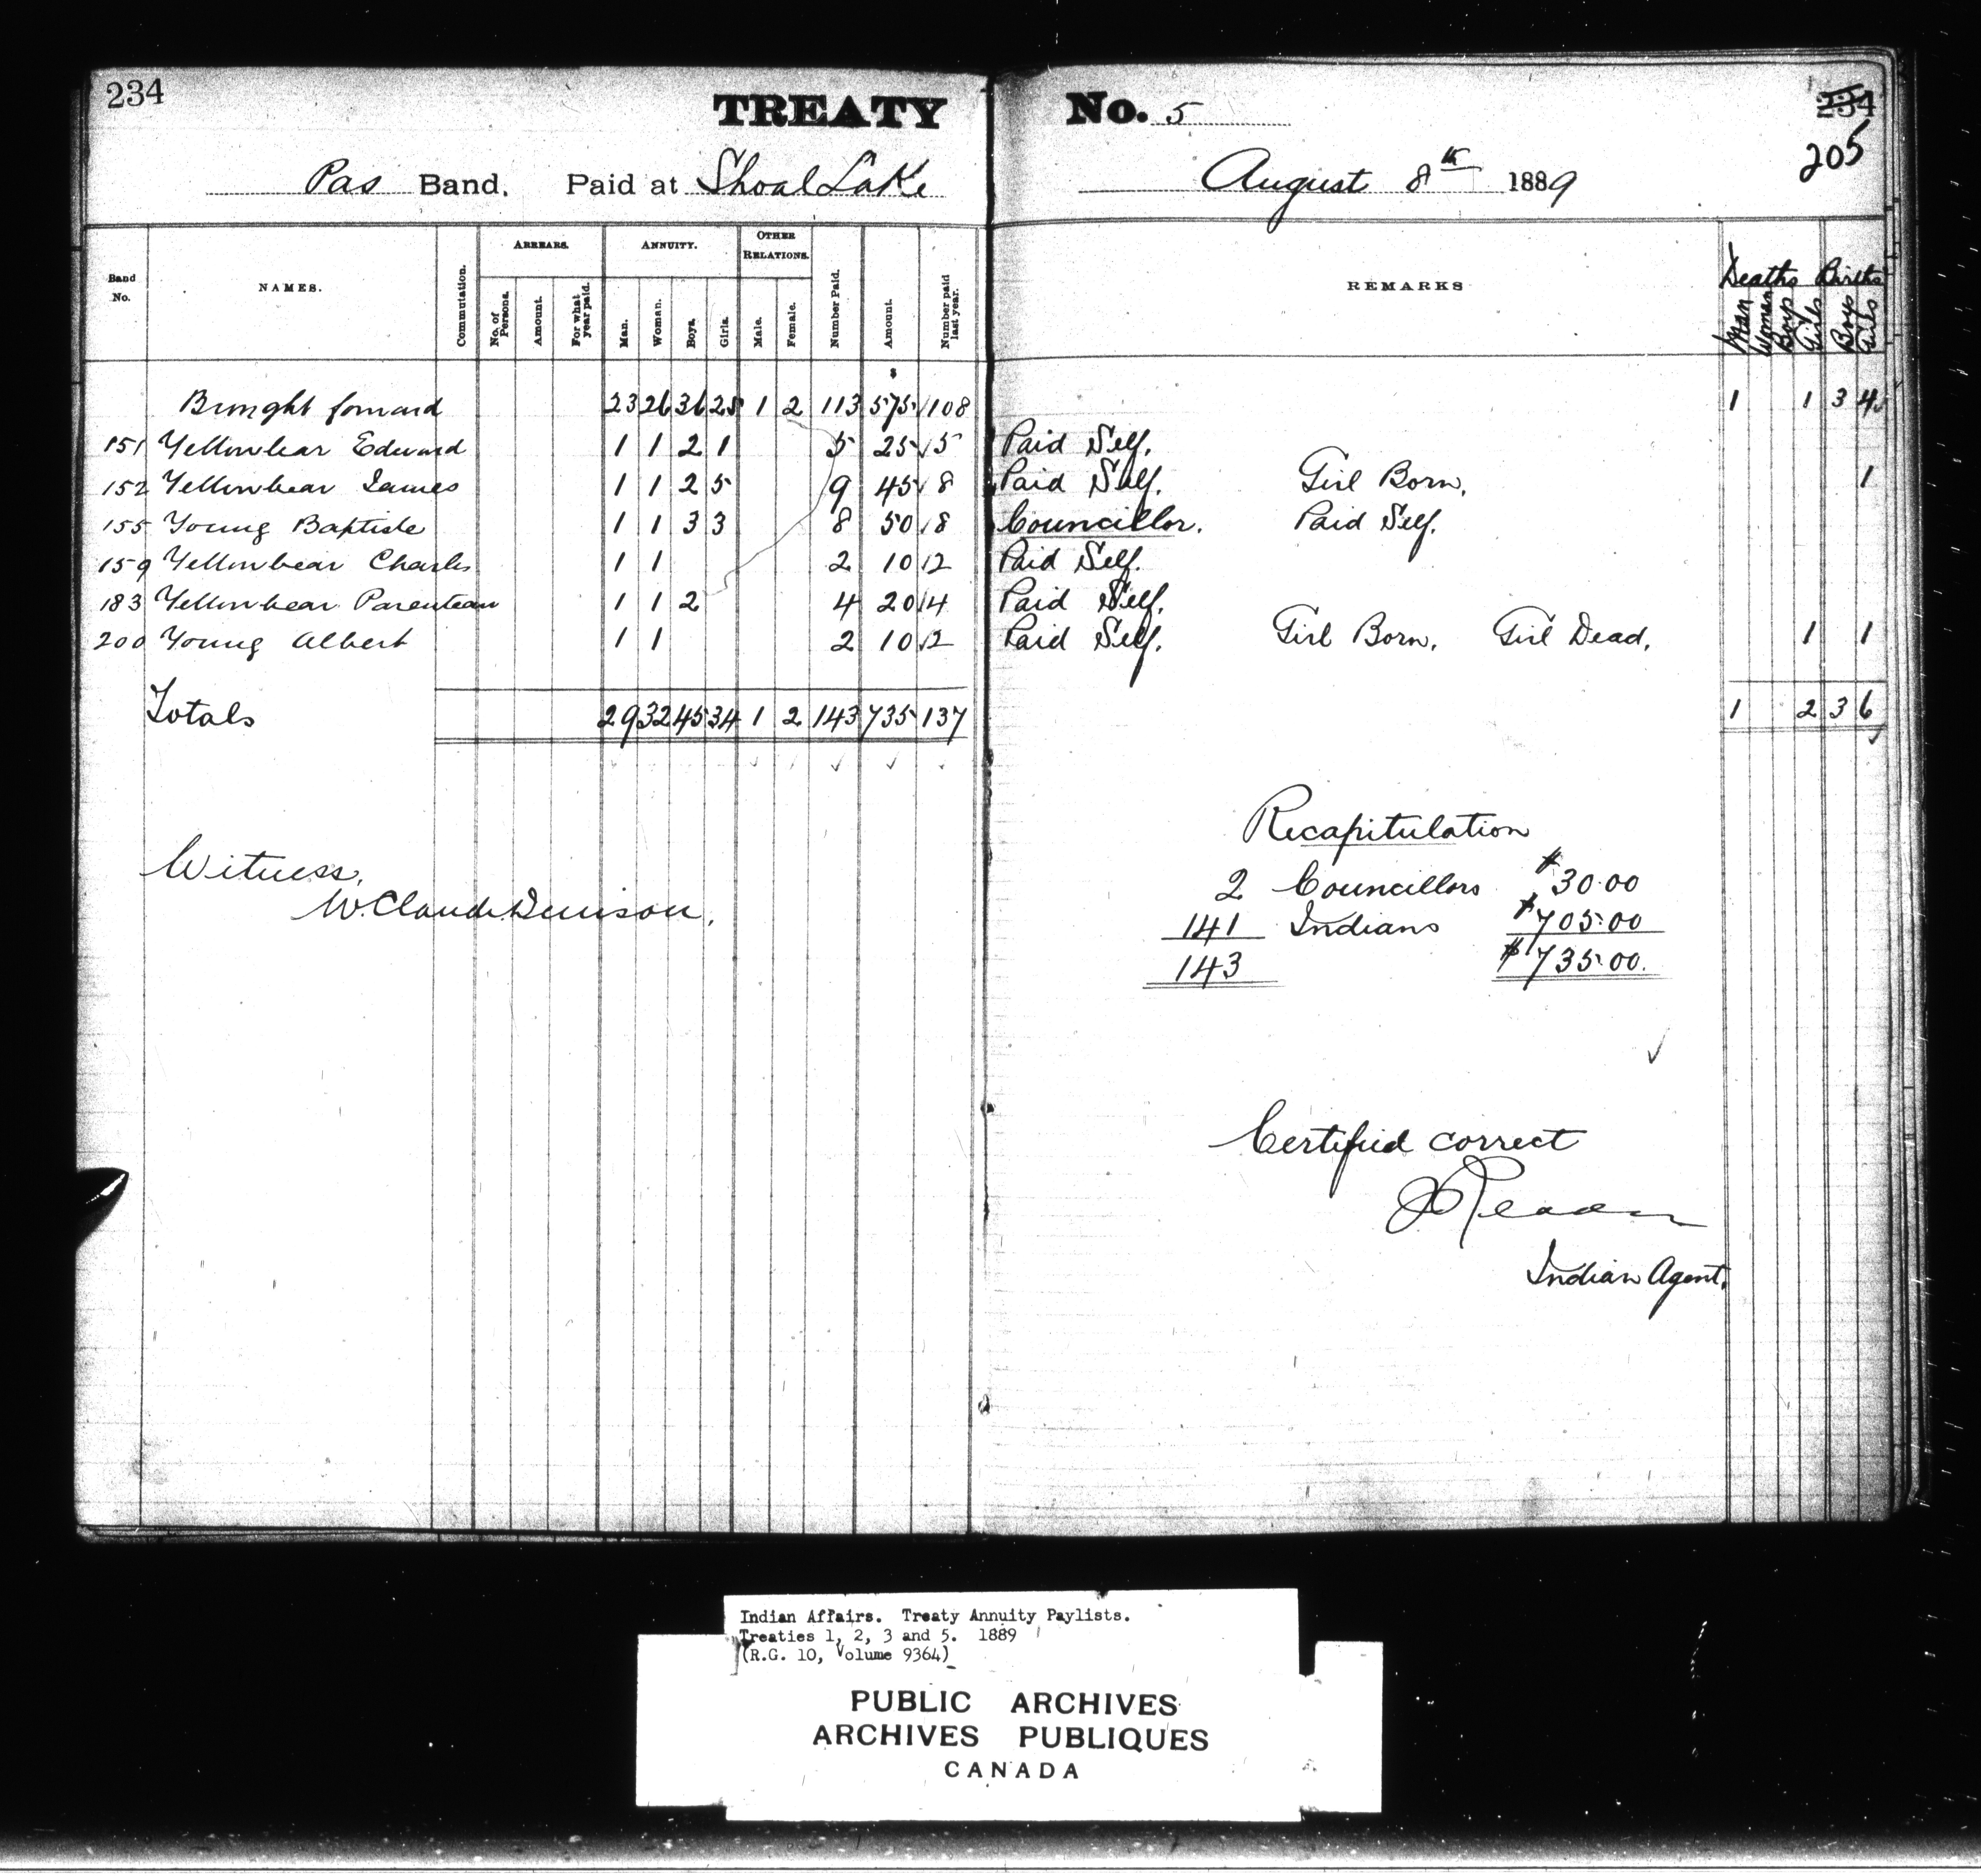 234
TREATY No. 5
234
205
Pas Band. Paid at Shoal Lake August 8th 1889
Band No. NAMES. Commutation. ARREARS. No. of Persons. Amount. For what year paid. ANNUITY. Man. Woman. Boys. Girls. OTHER RELATIONS. Male. Female. Number Paid. Amount. Number paid last year. REMARKS Deaths Man Woman Boys Girls Births Boys Girls
$
Brought forward 23 26 36 25 1 2 113 575 108 1 1 3 4
151 Yellowbear Edward 1 1 2 1 5 25 5 Paid Self.
152 Yellowbear James 1 1 2 5 9 45 8 Paid Self. Girl Born. 1
155 Young Baptiste 1 1 3 3 8 50 8 Councillor. Paid Self.
159 Yellowbear Charles 1 1 2 10 2 Paid Self.
183 Yellowbear Parenteau 1 1 2 4 20 4 Paid Self.
200 Young Albert 1 1 2 10 2 Paid Self. Girl Born. Girl Dead. 1 1
Totals 29 32 45 34 1 2 143 735 137 1 2 3 6
Recapitulation
Witness.
W. Claude Denison.
2 Councillors $30.00
141 Indians $705.00
143 $735.00.
Certified correct
J Reader
Indian Agent.
Indian Affairs. Treaty Annuity Paylists.
Treaties 1, 2, 3 and 5. 1889
(R.G. 10, Volume 9364)
PUBLIC ARCHIVES
ARCHIVES PUBLIQUES
CANADA